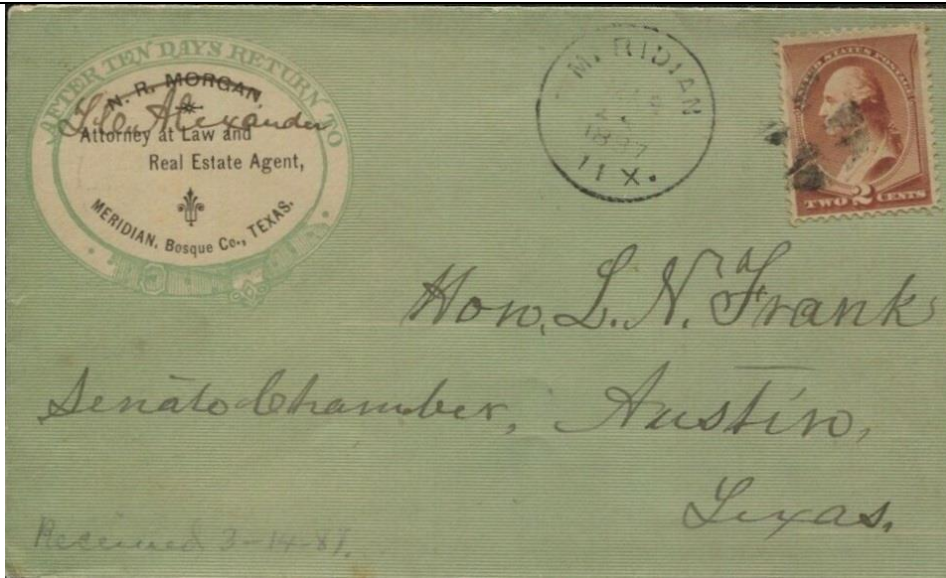 AFTER TEN DAYS RETURN TO
N. R. MORGAN
Alexander
Attorney at Law and
Real Estate Agent,
MERIDIAN, Bosque Co., TEXAS.
M RIDIAN
UNITED STATES POSTAGE
TWO 2 CENTS
Hon. L. N. Frank
Senate Chamber,
Austin,
Texas.
Received 3-14-87.